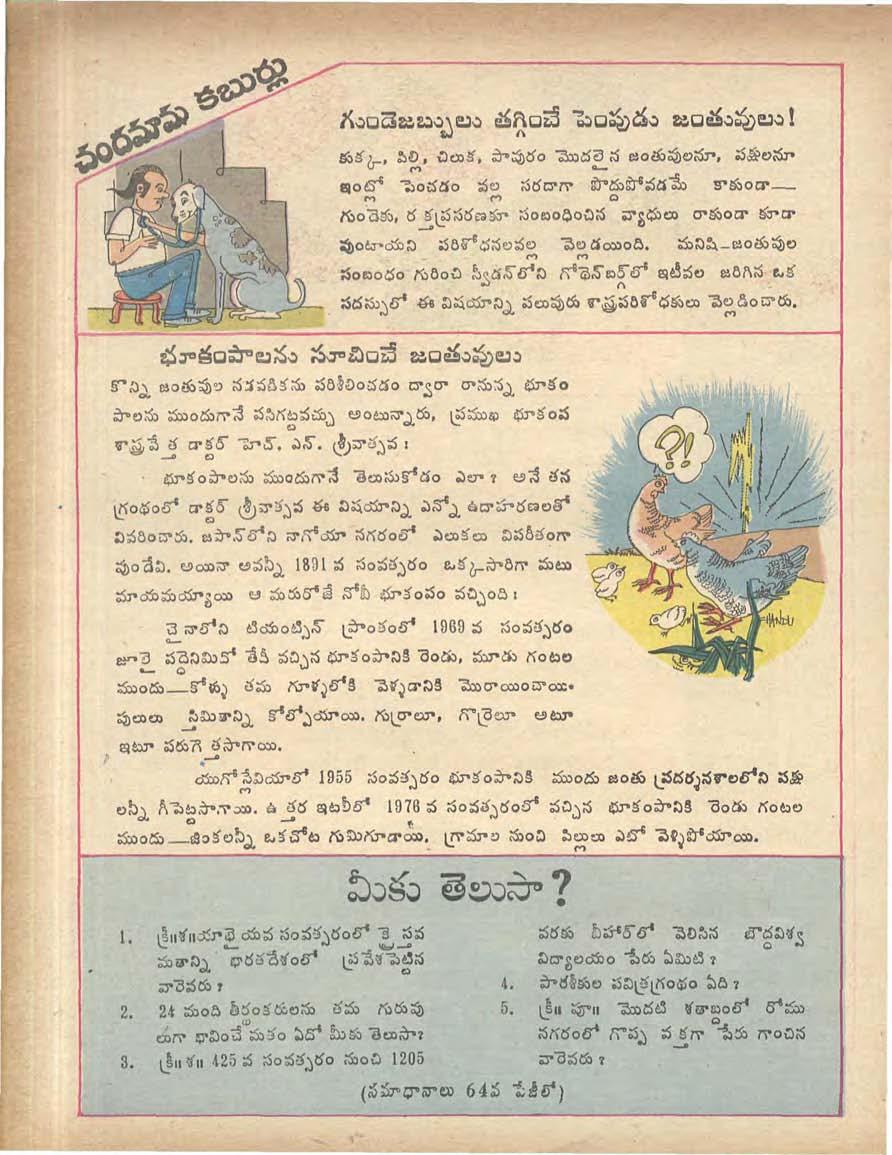 చందమామ కబుర్లు
గుండెజబ్బులు తగ్గించే పెంపుడు జంతువులు!
కుక్క, పిల్లి, చిలుక, పాపురం మొదలైన జంతువులనూ, పక్షులనూ
ఇంట్లో పెంచడం వల్ల సరదాగా పొద్దుపోవడమే కాకుండా—
గుండెకు, రక్తప్రసరణకూ సంబంధించిన వ్యాధులు రాకుండా కూడా
వుంటాయని పరిశోధనలవల్ల వెల్లడయింది. మనిషి-జంతువుల
సంబంధం గురించి స్వీడన్‌లోని గోథెన్‌బర్గ్‌లో ఇటీవల జరిగిన ఒక
సదస్సులో ఈ విషయాన్ని పలువురు శాస్త్రపరిశోధకులు వెల్లడించారు.
భూకంపాలను సూచించే జంతువులు
కొన్ని జంతువుల నడవడికను పరిశీలించడం ద్వారా రానున్న భూకం
పాలను ముందుగానే పసిగట్టవచ్చు అంటున్నారు, ప్రముఖ భూకంప
శాస్త్రవేత్త డాక్టర్ హెచ్. ఎన్. శ్రీవాత్సవ!
భూకంపాలను ముందుగానే తెలుసుకోడం ఎలా? అనే తన
గ్రంథంలో డాక్టర్ శ్రీవాత్సవ ఈ విషయాన్ని ఎన్నో ఉదాహరణలతో
వివరించారు. జపాన్‌లోని నాగోయా నగరంలో ఎలుకలు విపరీతంగా
వుండేవి. అయినా అవన్నీ 1891 వ సంవత్సరం ఒక్కసారిగా మటు
మాయమయ్యాయి ఆ మరురోజే నోబీ భూకంపం వచ్చింది!
చైనాలోని టియంట్సిన్ ప్రాంకంలో 1969 వ సంవత్సరం
జూలై పద్దెనిమిదో తేదీ వచ్చిన భూకంపానికి రెండు, మూడు గంటల
ముందు—కోళ్ళు తమ గూళ్ళలోకి వెళ్ళడానికి మొరాయించాయి.
పులులు స్తిమితాన్ని కోల్పోయాయి. గుర్రాలూ, గొర్రెలూ అటూ
ఇటూ పరుగెత్తసాగాయి.
యుగోస్లేవియాలో 1955 సంవత్సరం భూకంపానికి ముందు జంతు ప్రదర్శనశాలలోని పక్షు
లన్నీ గీపెట్టసాగాయి. ఉత్తర ఇటలీలో 1976 వ సంవత్సరంలో వచ్చిన భూకంపానికి రెండు గంటల
ముందు—జింకలన్నీ ఒకచోట గుమిగూడాయి. గ్రామాల నుంచి పిల్లులు ఎటో వెళ్ళిపోయాయి.
?!
CHANDU
మీకు తెలుసా?
1. క్రీ॥శ॥యాభైయవ సంవత్సరంలో క్రైస్తవ
మతాన్ని భారతదేశంలో ప్రవేశపెట్టిన
వారెవరు?
2. 24 మంది తీర్థంకరులను తమ గురువు
లుగా భావించే మతం ఏదో మీకు తెలుసా?
3. క్రీ॥శ॥ 425 వ సంవత్సరం నుంచి 1205
వరకు బీహార్‌లో వెలిసిన బౌద్ధవిశ్వ
విద్యాలయం పేరు ఏమిటి?
4. పారశీకుల పవిత్రగ్రంథం ఏది?
5. క్రీ॥ పూ॥ మొదటి శతాబ్దంలో రోము
నగరంలో గొప్ప వక్తగా పేరు గాంచిన
వారెవరు?
(సమాధానాలు 64వ పేజీలో)